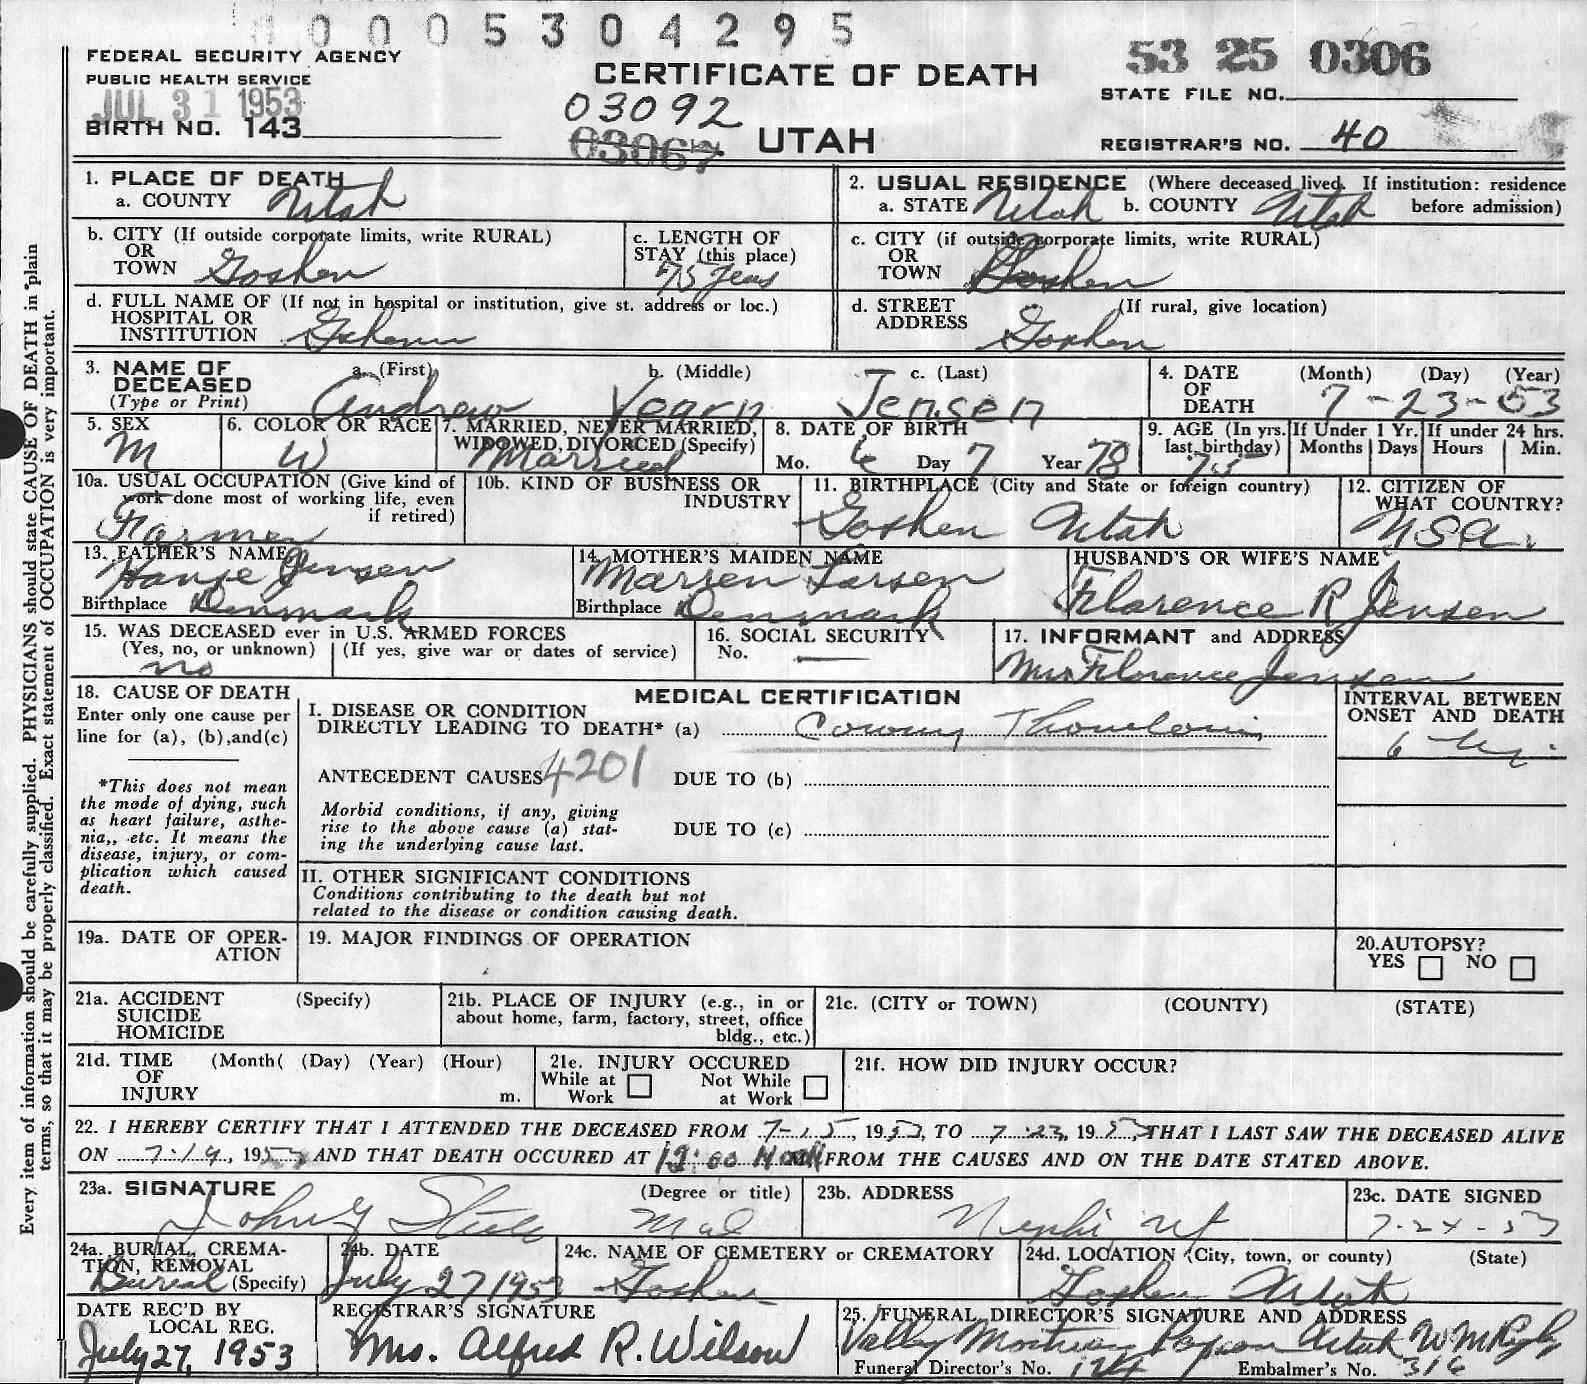 0005304295
FEDERAL SECURITY AGENCY
PUBLIC HEALTH SERVICE
JUL 31 1953
BIRTH NO. 143
CERTIFICATE OF DEATH
03092
03067 UTAH
53 25 0306
STATE FILE NO.
REGISTRAR'S NO. 40
Every item of information should be carefully supplied. PHYSICIANS should state CAUSE OF DEATH in plain
terms, so that it may be properly classified. Exact statement of OCCUPATION is very important.
1. PLACE OF DEATH
a. COUNTY Utah
2. USUAL RESIDENCE (Where deceased lived. If institution: residence
a. STATE Utah b. COUNTY Utah before admission)
b. CITY (If outside corporate limits, write RURAL)
OR
TOWN Goshen
c. LENGTH OF
STAY (this place)
75 years
c. CITY (if outside corporate limits, write RURAL)
OR
TOWN Goshen
d. FULL NAME OF (If not in hospital or institution, give st. address or loc.)
HOSPITAL OR
INSTITUTION Goshen
d. STREET (If rural, give location)
ADDRESS Goshen
3. NAME OF a. (First) b. (Middle) c. (Last)
DECEASED
(Type or Print) Andrew Vearn Jensen
4. DATE (Month) (Day) (Year)
OF
DEATH 7-23-53
5. SEX
M
6. COLOR OR RACE
W
7. MARRIED, NEVER MARRIED,
WIDOWED, DIVORCED (Specify)
Married
8. DATE OF BIRTH
Mo. 6 Day 7 Year 78
9. AGE (In yrs. last birthday)
75
If Under 1 Yr.
Months Days
If under 24 hrs.
Hours Min.
10a. USUAL OCCUPATION (Give kind of
work done most of working life, even
if retired)
Farmer
10b. KIND OF BUSINESS OR
INDUSTRY
11. BIRTHPLACE (City and State or foreign country)
Goshen Utah
12. CITIZEN OF
WHAT COUNTRY?
USA.
13. FATHER'S NAME
Hanse Jensen
Birthplace Denmark
14. MOTHER'S MAIDEN NAME
Marren Larsen
Birthplace Denmark
HUSBAND'S OR WIFE'S NAME
Florence R Jensen
15. WAS DECEASED ever in U.S. ARMED FORCES
(Yes, no, or unknown) (If yes, give war or dates of service)
no
16. SOCIAL SECURITY
No. —
17. INFORMANT and ADDRESS
Mrs Florence Jensen
18. CAUSE OF DEATH
Enter only one cause per
line for (a), (b),and(c)
*This does not mean
the mode of dying, such
as heart failure, asthe-
nia,, etc. It means the
disease, injury, or com-
plication which caused
death.
MEDICAL CERTIFICATION
I. DISEASE OR CONDITION
DIRECTLY LEADING TO DEATH* (a) Coronary Thrombosis
ANTECEDENT CAUSES 4201 DUE TO (b)
Morbid conditions, if any, giving
rise to the above cause (a) stat-
ing the underlying cause last.
DUE TO (c)
II. OTHER SIGNIFICANT CONDITIONS
Conditions contributing to the death but not
related to the disease or condition causing death.
INTERVAL BETWEEN
ONSET AND DEATH
6
19a. DATE OF OPER-
ATION
19. MAJOR FINDINGS OF OPERATION
20.AUTOPSY?
YES NO
21a. ACCIDENT (Specify)
SUICIDE
HOMICIDE
21b. PLACE OF INJURY (e.g., in or
about home, farm, factory, street, office
bldg., etc.)
21c. (CITY or TOWN) (COUNTY) (STATE)
21d. TIME (Month( (Day) (Year) (Hour)
OF
INJURY m.
21e. INJURY OCCURED
While at Work Not While at Work
21f. HOW DID INJURY OCCUR?
22. I HEREBY CERTIFY THAT I ATTENDED THE DECEASED FROM 7-15, 1953, TO 7-23, 1953, THAT I LAST SAW THE DECEASED ALIVE
ON 7-19, 1953 AND THAT DEATH OCCURED AT 12:00 Noon FROM THE CAUSES AND ON THE DATE STATED ABOVE.
23a. SIGNATURE (Degree or title)
John G Steele Md
23b. ADDRESS
Nephi Ut
23c. DATE SIGNED
7-24-53
24a. BURIAL, CREMA-
TION, REMOVAL
Burial (Specify)
24b. DATE
July 27 1953
24c. NAME OF CEMETERY or CREMATORY
Goshen
24d. LOCATION (City, town, or county) (State)
Goshen Utah
DATE REC'D BY
LOCAL REG.
July 27, 1953
REGISTRAR'S SIGNATURE
Mrs. Alfred R. Wilson
25. FUNERAL DIRECTOR'S SIGNATURE AND ADDRESS
Valley Mortuary Payson Utah W M Rigby
Funeral Director's No. 124 Embalmer's No. 316